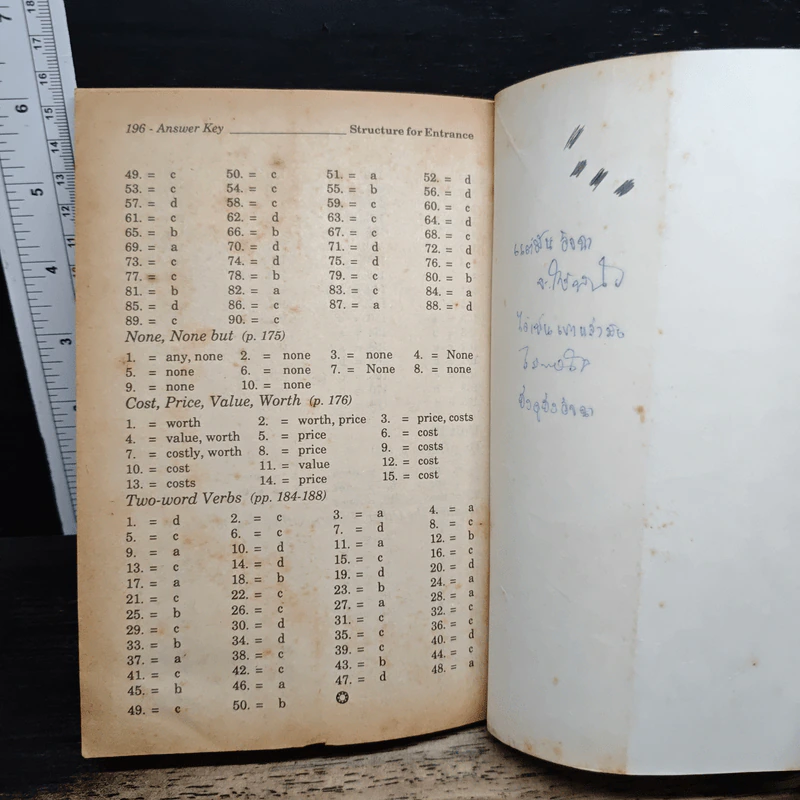 196 - Answer Key Structure for Entrance
49. = c 50. = c 51. = a 52. = d
53. = c 54. = c 55. = b 56. = d
57. = d 58. = c 59. = c 60. = c
61. = c 62. = d 63. = c 64. = d
65. = b 66. = b 67. = c 68. = c
69. = a 70. = d 71. = d 72. = d
73. = c 74. = d 75. = d 76. = c
77. = c 78. = b 79. = c 80. = b
81. = b 82. = a 83. = c 84. = a
85. = d 86. = c 87. = a 88. = d
89. = c 90. = c
None, None but (p. 175)
1. = any, none 2. = none 3. = none 4. = None
5. = none 6. = none 7. = None 8. = none
9. = none 10. = none
Cost, Price, Value, Worth (p. 176)
1. = worth 2. = worth, price 3. = price, costs
4. = value, worth 5. = price 6. = cost
7. = costly, worth 8. = price 9. = costs
10. = cost 11. = value 12. = cost
13. = costs 14. = price 15. = cost
Two-word Verbs (pp. 184-188)
1. = d 2. = c 3. = a 4. = a
5. = c 6. = c 7. = d 8. = c
9. = a 10. = d 11. = a 12. = b
13. = c 14. = d 15. = c 16. = c
17. = a 18. = b 19. = d 20. = d
21. = c 22. = c 23. = b 24. = a
25. = b 26. = c 27. = a 28. = a
29. = c 30. = d 31. = c 32. = c
33. = b 34. = d 35. = c 36. = c
37. = a 38. = c 39. = c 40. = d
41. = c 42. = c 43. = b 44. = c
45. = b 46. = a 47. = d 48. = a
49. = c 50. = b